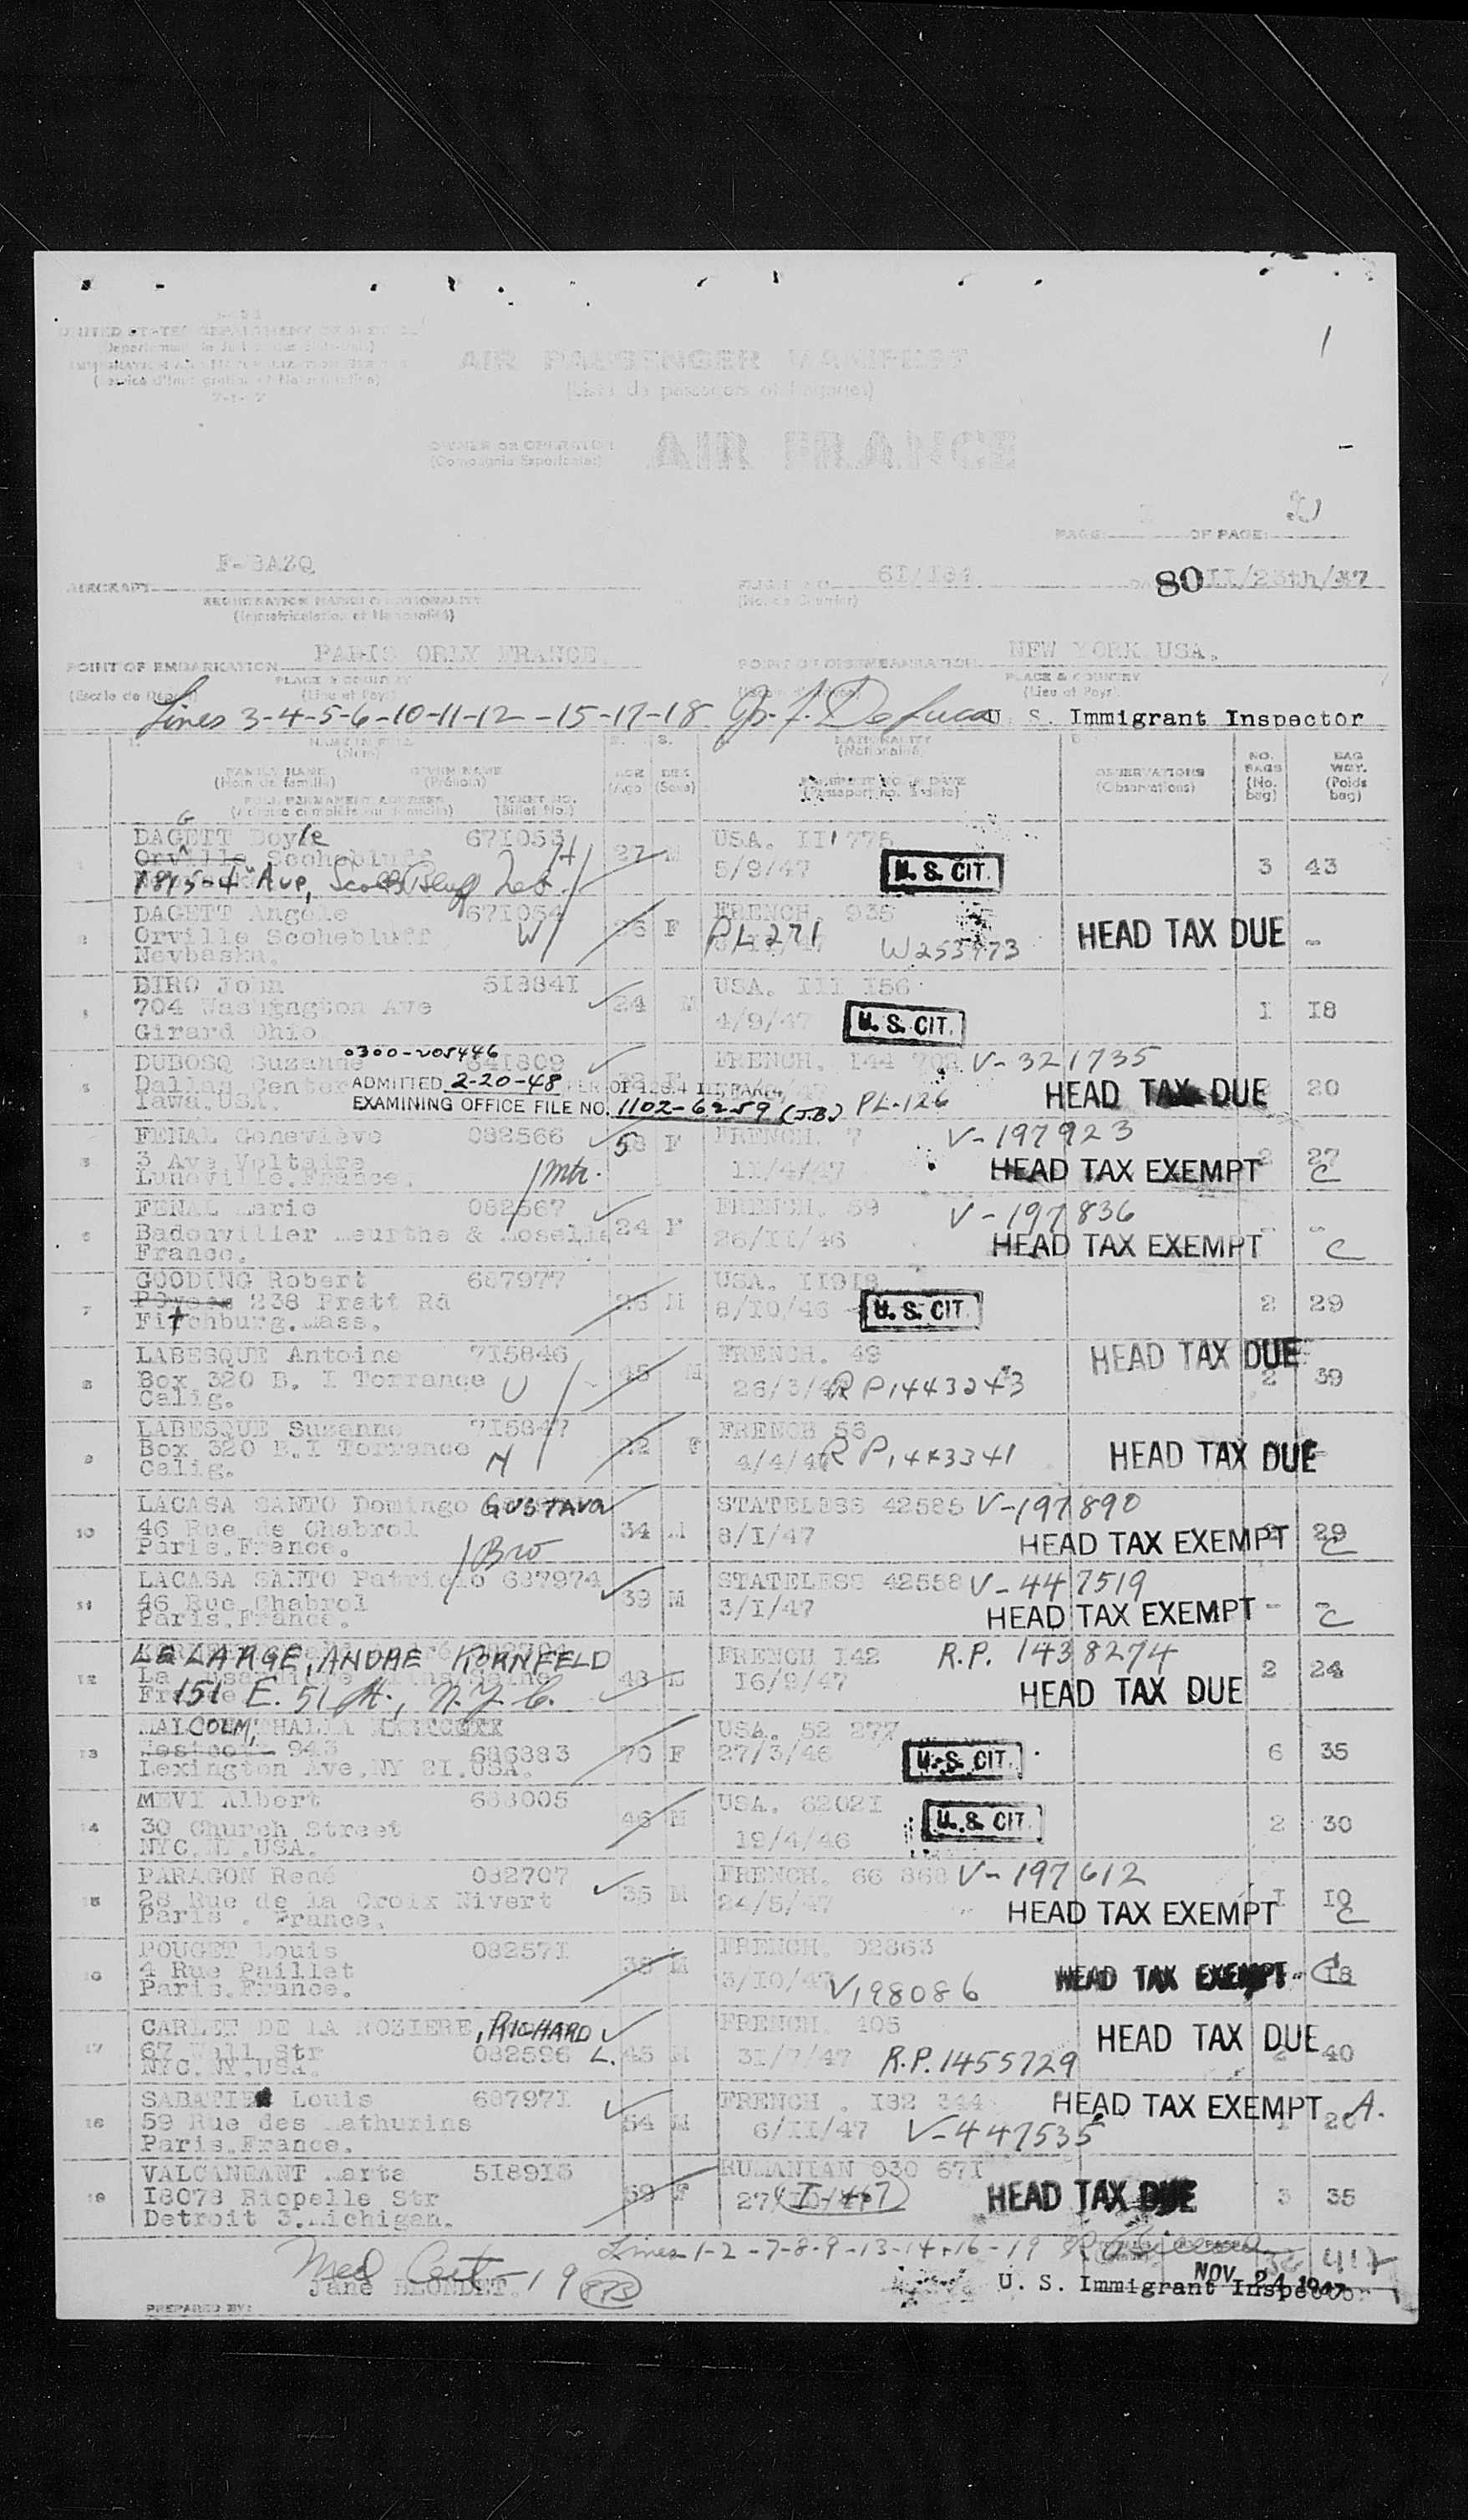 1
UNITED STATES DEPARTMENT OF JUSTICE
AIR PASSENGER MANIFEST
(Liste de passagers et bagages)
OWNER OR OPERATOR
AIR FRANCE
PAGE OF PAGE
AIRCRAFT F-BAZQ
80 II/23th/47
REGISTRATION MARKS & NATIONALITY
(Immatriculation et Nationalité)
POINT OF EMBARKATION PARIS ORLY FRANCE.
POINT OF DISEMBARKATION NEW YORK USA.
PLACE & COUNTRY
(Lieu et Pays)
PLACE & COUNTRY
(Lieu et Pays)
Lines 3-4-5-6-10-11-12-15-17-18 U. S. Immigrant Inspector
FAMILY NAME (Nom de famille)
GIVEN NAME (Prénom)
TICKET NO. (Billet No.)
AGE (Age)
SEX (Sexe)
NATIONALITY (Nationalité)
OBSERVATIONS (Observations)
NO. BAGS (No. bag)
BAG WGT. (Poids bag)
G
DAGETT Doyle 671053 H
27 M USA. III 775
5/9/47 U. S. CIT. 3 43
1815-4" Ave, Scotts Bluff Neb.
DAGETT Angele 671054
Orville Scohebluff W
Nevbaska.
36 F FRENCH. 935
PL 271 W253973 HEAD TAX DUE -
DIRO John 513841
704 Washington Ave
Girard Ohio
24 M USA. III 156
4/9/47 U. S. CIT. 1 18
DUBOSQ Suzanne 0300-205446
341809
Dallas Center
Iawa.USA.
FRENCH. 144 702 V-321735
ADMITTED 2-20-48
EXAMINING OFFICE FILE NO. 1102-6259 (J.B.) PL-126
HEAD TAX DUE 20
FENAL Genevieve 082566
3 Ave Voltaire
Luneville.France. Mtr.
58 F FRENCH. 7 V-197923
11/4/47 HEAD TAX EXEMPT 2 27 C
FENAL Marie 082567
Badonviller Meurthe & Moselle
France.
24 F FRENCH. 59 V-197836
26/II/46 HEAD TAX EXEMPT - - C
GOODING Robert 687977
238 Pratt Rd
Fitchburg.Mass.
M USA. II918
8/10/46 U. S. CIT. 2 29
LABESQUE Antoine 715846
Box 320 B. I Torrance
Calig.
45 M FRENCH. 49
26/3/47 R P, 1443243 HEAD TAX DUE 2 39
LABESQUE Suzanne 715847
Box 320 B.I Torrence
Calig. H
22 F FRENCH 53
4/4/47 R P, 1443341 HEAD TAX DUE
LACASA SANTO Domingo GUSTAVO
46 Rue de Chabrol
Paris.France. Bro
34 M STATELESS 42585 V-197890
8/I/47 HEAD TAX EXEMPT 2 29 C
LACASA SANTO Patricio 687974
46 Rue Chabrol
Paris.France.
39 M STATELESS 42558 V-447519
3/I/47 HEAD TAX EXEMPT - - C
LELARGE, ANDRE KORNFELD
151 E. 51 St., N.Y.C.
48 M FRENCH 142 R.P. 1438274
16/9/47 HEAD TAX DUE 2 24
MALCOLM, THALIA WESTCOTT
943 686883
Lexington Ave.NY 21.USA.
70 F USA. 52 277
27/3/46 U. S. CIT. 6 35
MEVI Albert 683005
30 Church Street
NYC.NY.USA.
46 M USA. 62021
19/4/46 U. S. CIT. 2 30
PARAGON René 082707
28 Rue de la Croix Nivert
Paris . France.
35 M FRENCH. 66 868 V-197612
24/5/47 HEAD TAX EXEMPT 1 10 C
POUGET Louis 082571
4 Rue Paillet
Paris.France.
38 M FRENCH. 02863
3/10/47 V,198086 HEAD TAX EXEMPT 18
CARLET DE LA ROZIERE, RICHARD L.
67 Wall Str 082596
NYC.NY.USA.
45 M FRENCH. 405
31/7/47 R.P. 1455729 HEAD TAX DUE 2 40
SABATIER Louis 687971
59 Rue des Mathurins
Paris.France.
54 M FRENCH . 182 344
6/II/47 V-447535 HEAD TAX EXEMPT 1 20 A.
VALCANEANT Marta 518915
18078 Riopelle Str
Detroit 3.Michigan.
59 F RUMANIAN 030 671
HEAD TAX DUE 3 35
Lines 1-2-7-8-9-13-14-16-19
Med Cert-19
Jane BLONDET
U. S. Immigrant Inspector
NOV 24 1947
PREPARED BY: